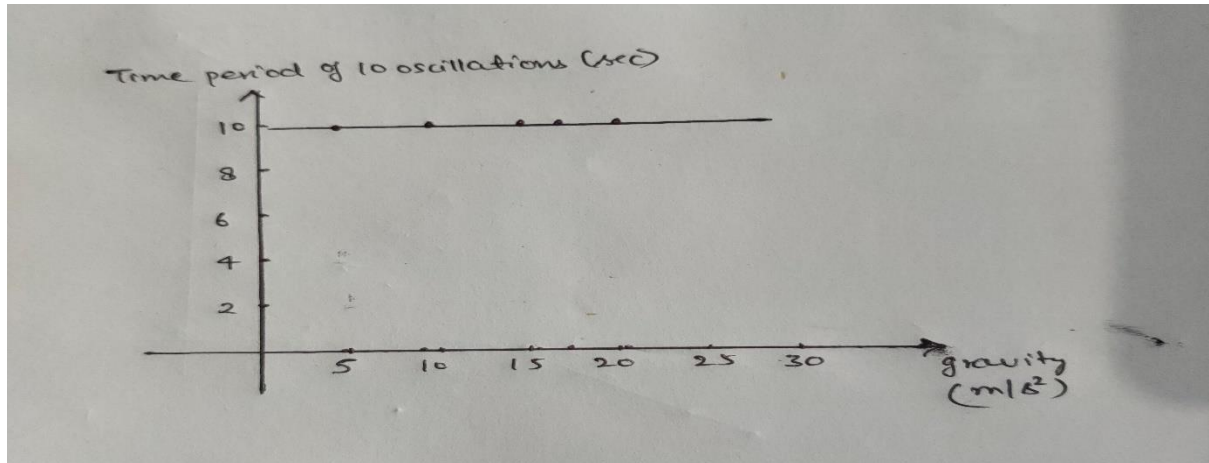 Time period of 10 oscillations (sec)
10
8
6
4
2
5 10 15 20 25 30
gravity
(m/s²)